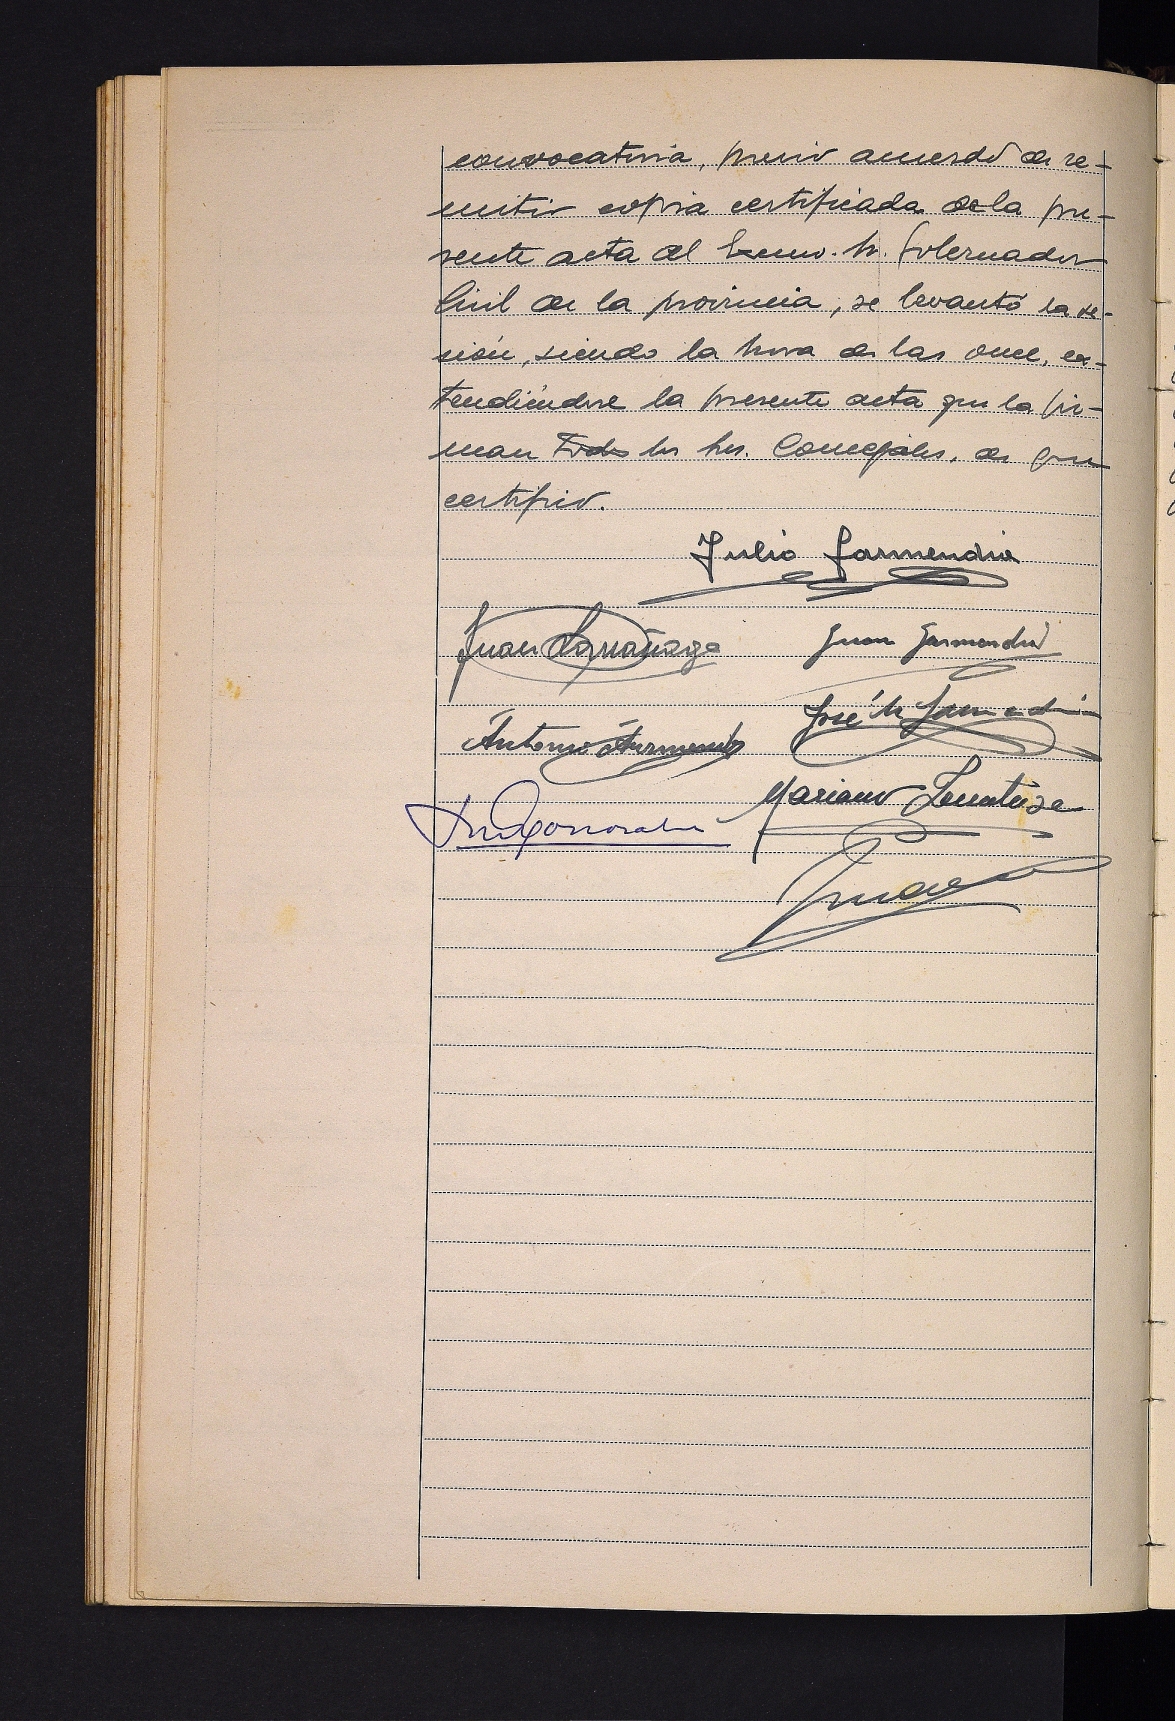 convocatoria, previo acuerdo de re-
mitir copia certificada de la pre-
sente acta al Excmo. Sr. Gobernador
Civil de la provincia, se levantó la se-
sión, siendo la hora de las once, ex-
tendiéndose la presente acta que la fir-
man todos los Sres. Concejales, de que
certifico.
Julio Garmendia
Juan Larrañaga Juan Garmendia
José M Garmendia
Antonio Garmendia
Mariano